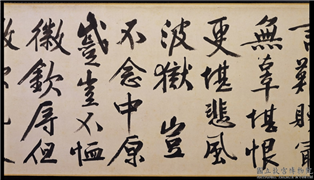 言難贖最
無辜堪恨
更堪悲風
波獄豈
不念中原
蹙豈不恤
徽欽辱但